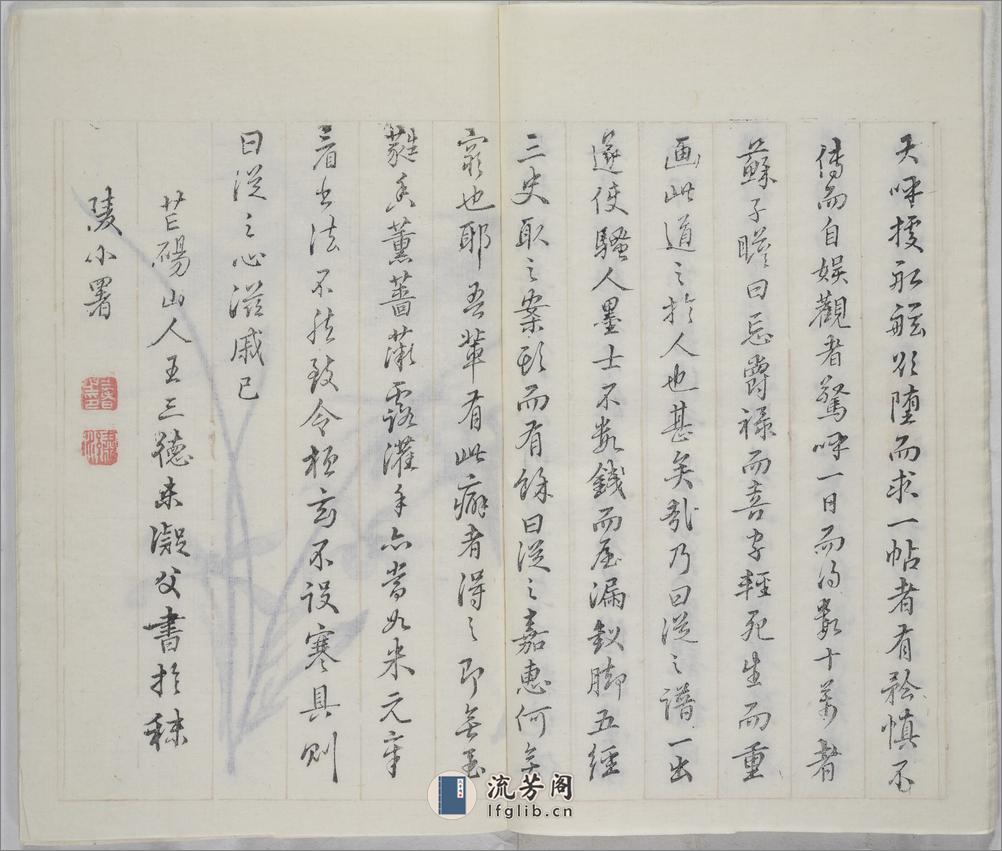 天呼擭取舷欲墮而求一帖者有矜慎不
傳而自娛觀者驚呼一日而得數十萬者
蘇子瞻曰忘爵祿而喜字輕死生而重
画此道之於人也甚矣哉乃曰從之譜一出
遂使騷人墨士不數錢而屋漏釵脚五經
三史取之案頭而有餘曰從之嘉惠何
窮也耶吾輩有此癖者得之即無
薰薔薇露灌手亦當如米元章
着書法不然致令桓玄不設寒具則
曰從之心滋戚已
芒碭山人王三德東凝父書於秣
陵小署
流芳阁
lfglib.cn